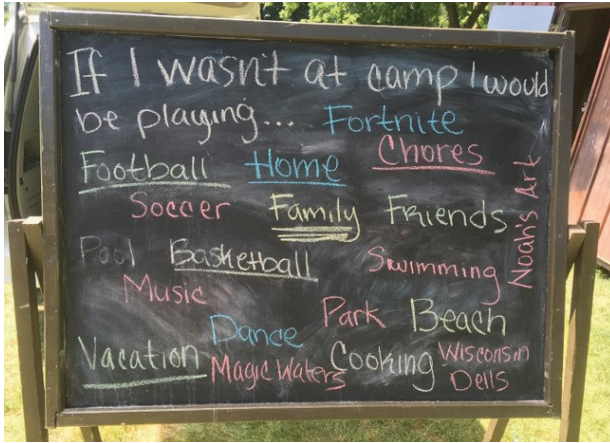 If I wasn't at camp I would
be playing... Fortnite
Chores
Football Home
Soccer Family Friends
Noah's Art
Pool Basketball Swimming
Music
Park Beach
Dance
Vacation Magic Waters Cooking Wisconsin
Dells